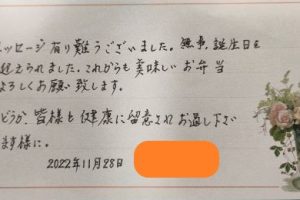 ッセージ有り難うございました。無事、誕生日を
迎えられました。これからも美味しいお弁当
よろしくお願い致します。
どうか、皆様も健康に留意されお過し下さい
ます様に。
2022年11月28日